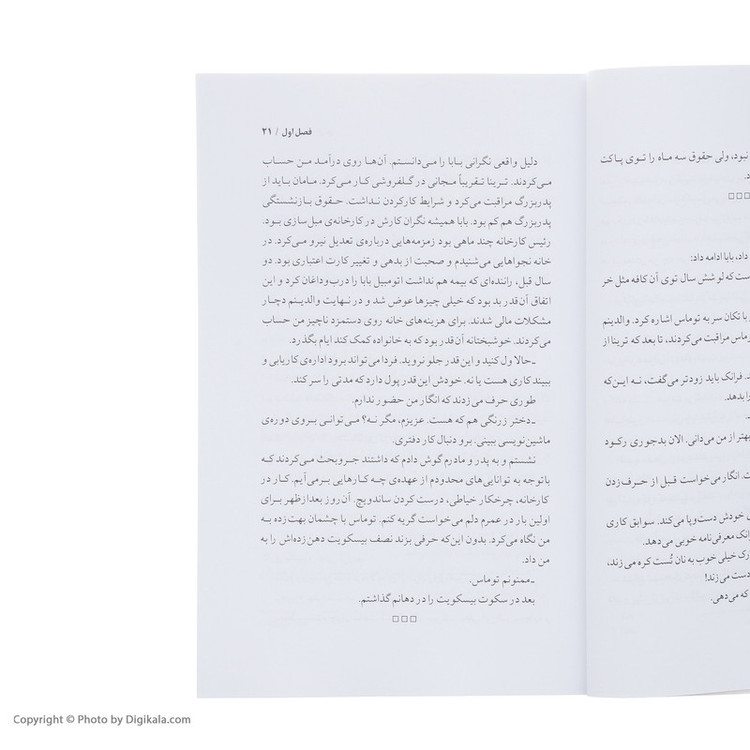 نبود، ولی حقوق سه ماه را توی پاکت
د.
□□□
داد، بابا ادامه داد:
ست که لو شش سال توی آن کافه مثل خر
با تکان سر به توماس اشاره کرد. والدینم
ماس مراقبت می‌کردند، تا بعد که ترینا از
د. فرانک باید زودتر می‌گفت، نه این‌که
را بدهد.
بهتر از من می‌دانی. الان بدجوری رکود
ت. انگار می‌خواست قبل از حرف زدن
ی خودش دست‌وپا می‌کند. سوابق کاری
رانک معرفی‌نامه خوبی می‌دهد.
ارک خیلی خوب به نان تُست کره می‌زند،
دست می‌زند!
که می‌دهی.
فصل اول / ۲۱
دلیل واقعی نگرانی بابا را می‌دانستم. آن‌ها روی درآمد من حساب
می‌کردند. ترینا تقریباً مجانی در گلفروشی کار می‌کرد. مامان باید از
پدربزرگ مراقبت می‌کرد و شرایط کارکردن نداشت. حقوق بازنشستگی
پدربزرگ هم کم بود. بابا همیشه نگران کارش در کارخانه‌ی مبل‌سازی بود.
رئیس کارخانه چند ماهی بود زمزمه‌هایی درباره‌ی تعدیل نیرو می‌کرد. در
خانه نجواهایی می‌شنیدم و صحبت از بدهی و تغییر کارت اعتباری بود. دو
سال قبل، راننده‌ای که بیمه هم نداشت اتومبیل بابا را درب‌وداغان کرد و این
اتفاق آن‌قدر بد بود که خیلی چیزها عوض شد و در نهایت والدینم دچار
مشکلات مالی شدند. برای هزینه‌های خانه روی دستمزد ناچیز من حساب
می‌کردند. خوشبختانه آن‌قدر بود که به خانواده کمک کند ایام بگذرد.
ـ حالا ول کنید و این قدر جلو نروید. فردا می‌تواند برود اداره‌ی کاریابی و
ببیند کاری هست یا نه. خودش این قدر پول دارد که مدتی را سر کند.
طوری حرف می‌زدند که انگار من حضور ندارم.
ـ دختر زرنگی هم که هست. عزیزم، مگر نه؟ می‌توانی بروی دوره‌ی
ماشین‌نویسی ببینی. برو دنبال کار دفتری.
نشستم و به پدر و مادرم گوش دادم که داشتند جروبحث می‌کردند که
باتوجه به توانایی‌های محدودم از عهده‌ی چه کارهایی برمی‌آیم. کار در
کارخانه، چرخکار خیاطی، درست کردن ساندویچ. آن روز بعدازظهر برای
اولین بار در عمرم دلم می‌خواست گریه کنم. توماس با چشمان بهت زده به
من نگاه می‌کرد. بدون این‌که حرفی بزند نصف بیسکویت دهن زده‌اش را به
من داد.
ـ ممنونم توماس.
بعد در سکوت بیسکویت را در دهانم گذاشتم.
□□□
Copyright © Photo by Digikala.com